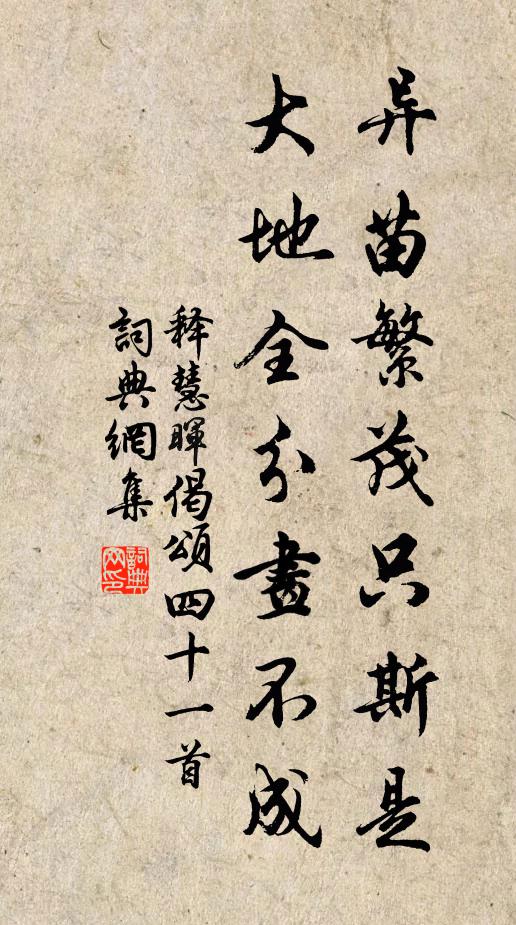 异苗繁茂只斯是
大地全分畫不成
释慧暉偈頌四十一首
詞典網集
詞典网印